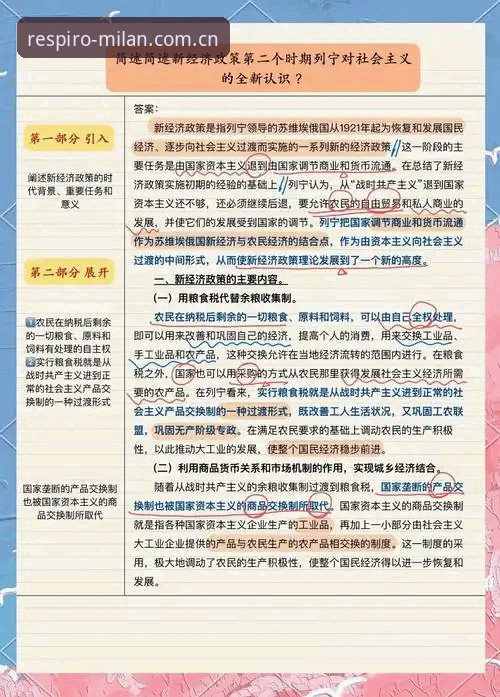 respiro-milan.com.cn
简述简述新经济政策第二个时期列宁对社会主义
的全新认识？
第一部分 引入
阐述新经济政策的时
代背景、重要任务和
意义
第二部分 展开
1农民在纳税后剩余
的一切粮食、原料和
饲料有处理的自主权
2实行粮食税就是从
战时共产主义进到正
常的社会主义产品交
换制的一种过渡形式
国家垄断的产品交换制
也被国家资本主义的商
品交换制所取代
答案：
新经济政策是指列宁领导的苏维埃俄国从1921年起为恢复和发展国民
经济、逐步向社会主义过渡而实施的一系列新的经济政策//这一阶段的主
要任务是由国家资本主义退到由国家调节商业和货币流通。在总结了新经
济政策实施初期的经验的基础上//列宁认为，从“战时共产主义”退到国家
资本主义还不够，还必须继续后退，要允许农民的自由贸易和私人商业的
发展，并使它们的发展受到国家的调节。列宁把国家调节商业和货币流通
作为苏维埃俄国新经济与农民经济的结合点，作为由资本主义向社会主义
过渡的中间形式，从而使新经济政策理论发展到了一个新的高度。
一、新经济政策的主要内容。
（一）用粮食税代替余粮收集制。
农民在纳税后剩余的一切粮食、原料和饲料，可以由自己全权处理，
即可以用来改善和巩固自己的经济，提高个人的消费，用来交换工业品、
手工业品和农产品，这种交换允许在当地经济流转的范围内进行。在粮食
税之外，国家也可以用采购的方式从农民那里获得发展社会主义经济所需
要的农产品。在列宁看来，实行粮食税就是从战时共产主义进到正常的社
会主义产品交换制的一种过渡形式，既改善工人生活状况，又巩固工农联
盟，巩固无产阶级专政。在满足农民要求的基础上调动农民的生产积极
性，以此推动大工业的发展，使整个国民经济稳步前进。
（二）利用商品货币关系和市场机制的作用，实现城乡经济结合。
随着从战时共产主义的余粮收集制过渡到粮食税，国家垄断的产品交
换制也被国家资本主义的商品交换制所取代。国家资本主义的商品交换制
就是指各种国家资本主义企业生产的工业品，再加上一小部分由社会主义
大工业企业提供的产品与农民生产的农产品相交换的制度。这一制度的采
用，极大地调动了农民的生产积极性，使整个国民经济得以进一步恢复和
发展。